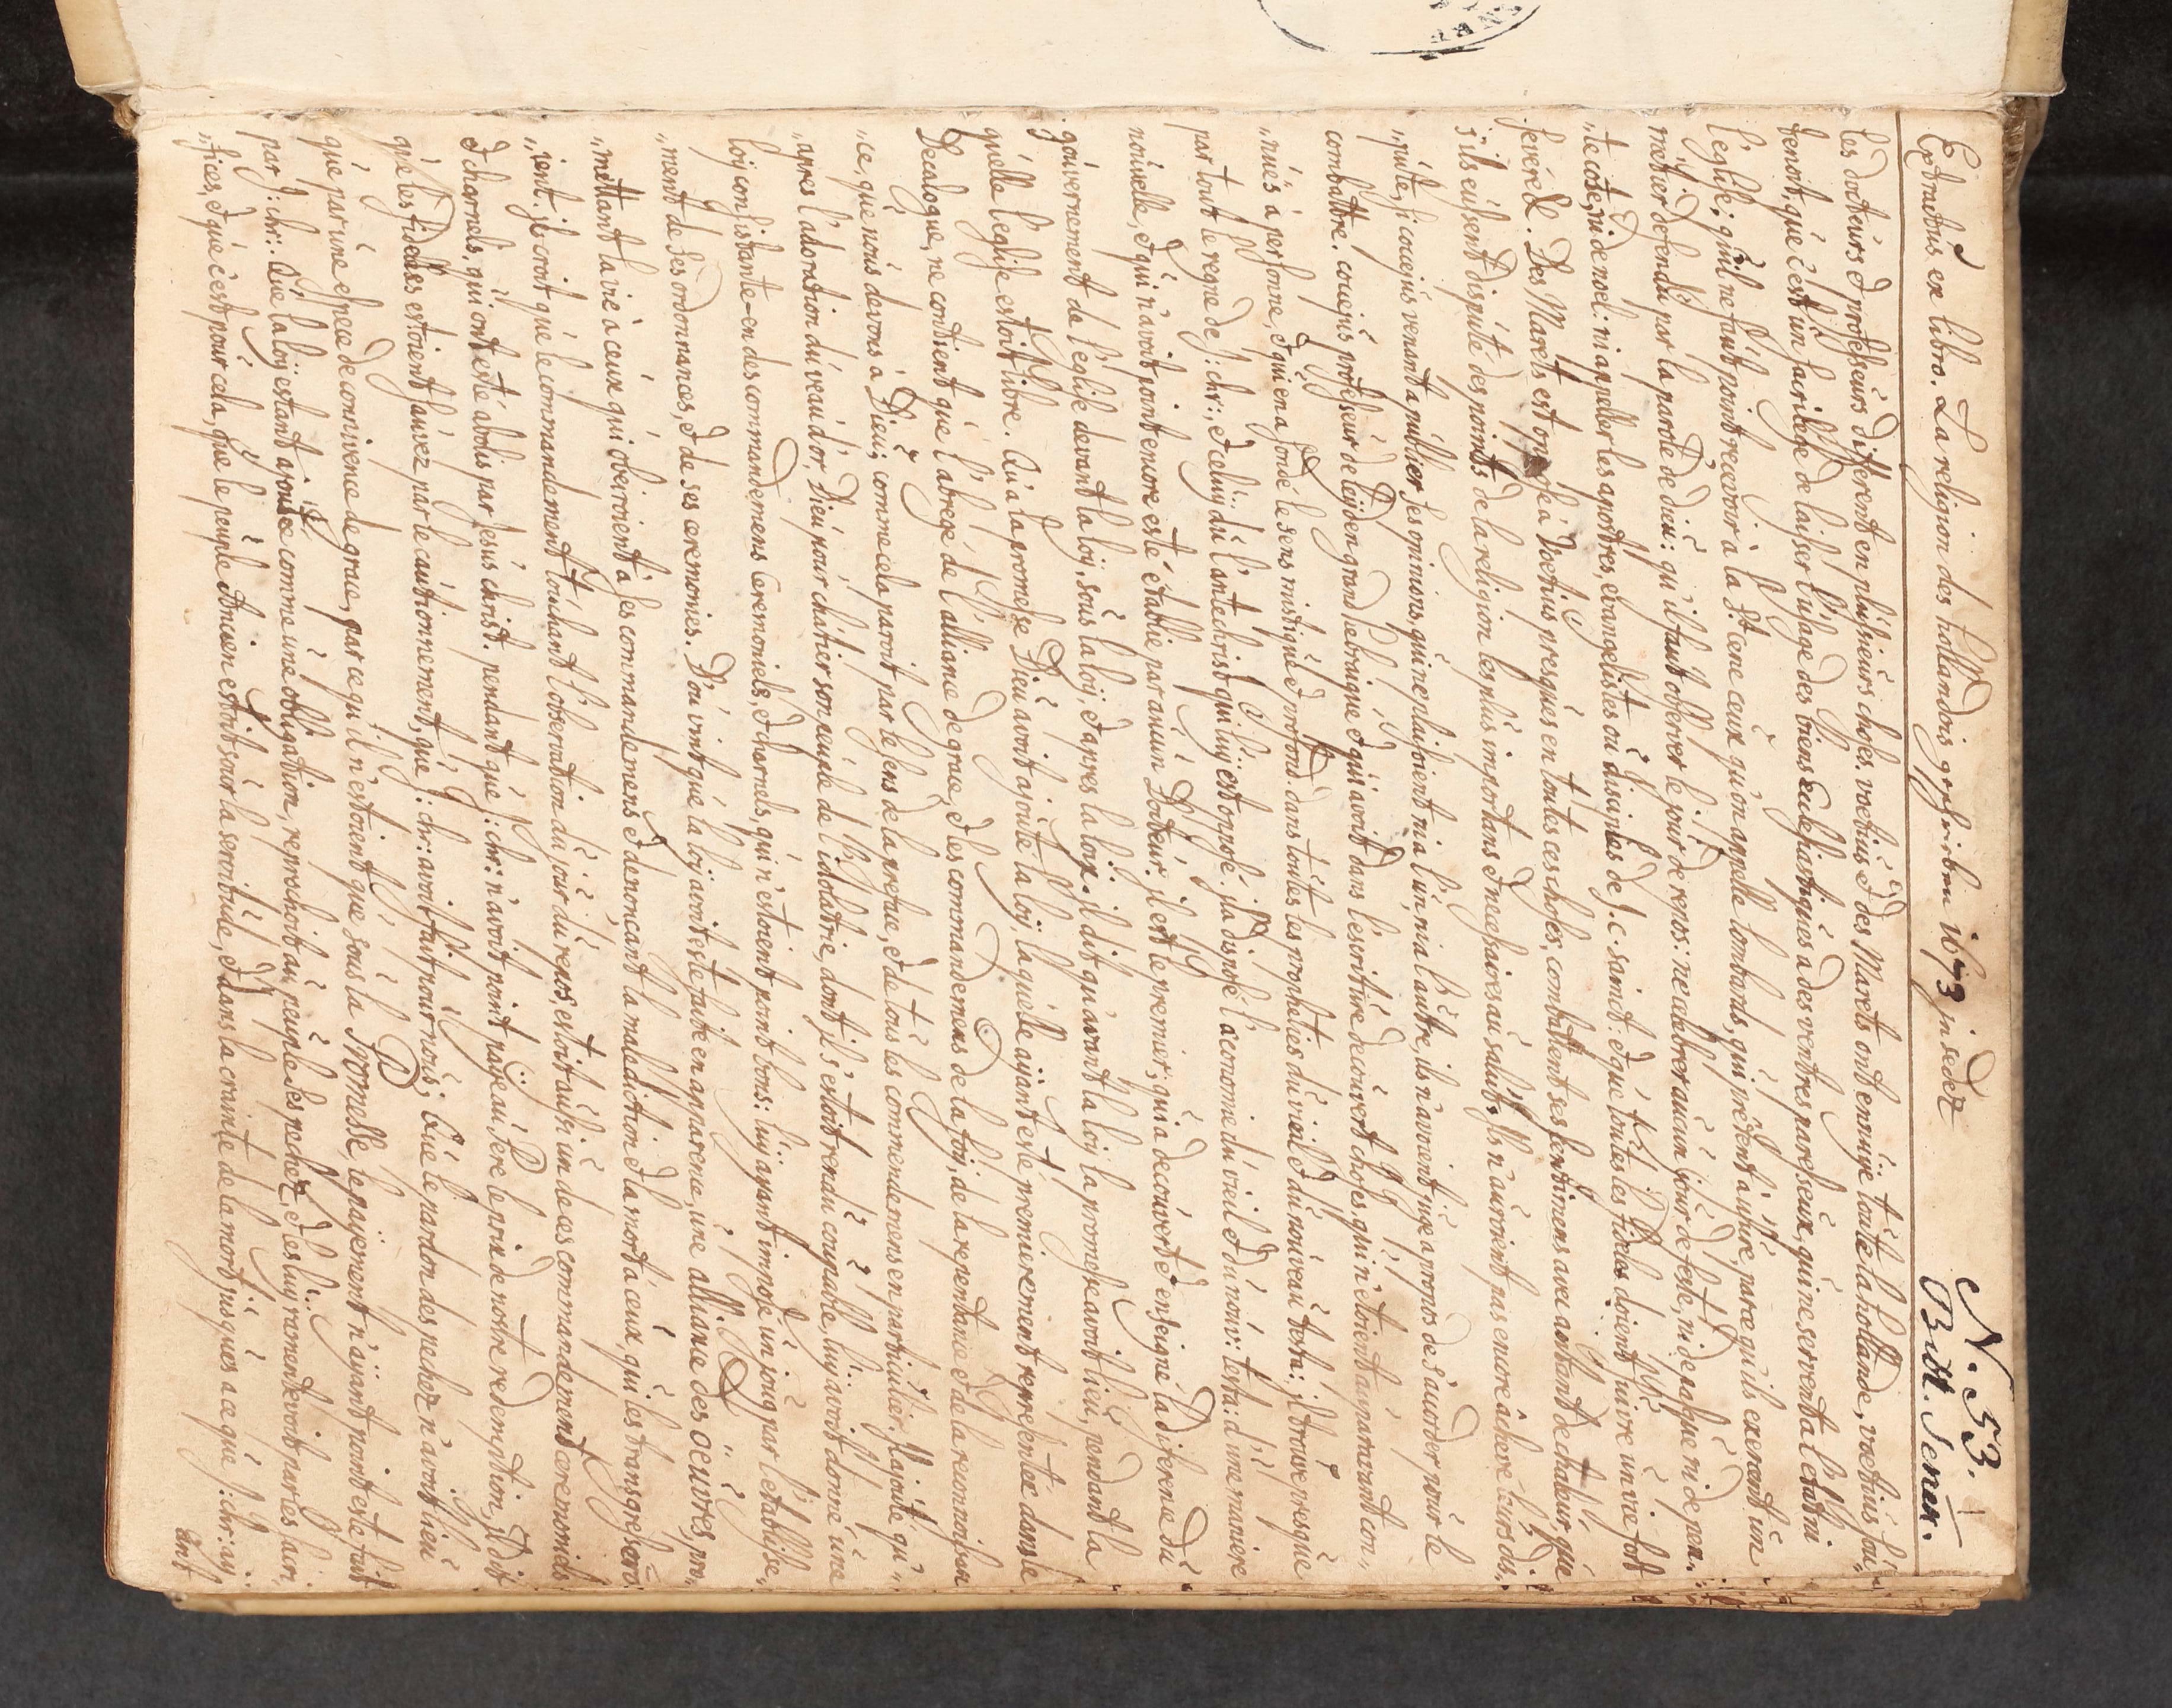 N. 53.
Bibl. Senck.
Extractus ex libro. La religion des hollandois gescribm 1673 in sedez
les docteurs et professeurs different en plusieurs choses, voetius et des Marets ont ennuije toute la hollande, voetius sou„
tenoit, que c'est un sacrilege de laisser l'usage des biens Ecclesiastiques a des ventres paresseux, qui ne servent a l'estat ni
l'eglise; qu'il ne faut point recevoir à la Ste cene ceux qu'on appelle lombards, qui prêtent a usure, parce qu'ils exercent un
métier defendu par la parole de dieu: qu'il faut observer le jour de repos: ne celebrer aucun jour de feste, ni de pasque ni de pen„
„tecoste, ni de noel: ni appeller les apostres, evangelistes ou disciples de J. c. saints: et que toutes les fideles doivent suivre un vie fort
severe &. Des Marets est opposé à Voetius presques en toutes ces choses, combattent ses sentimens avec autant de chaleur que
s'ils eussent disputé des points de la religion les plus importans et necessaires au salut, Ils n'auroient pas encore achevé leurs dis„
„putes, si coccejus venant a publier ses opinions, qui ne plaisoient ni a l'un, ni a l'autre, ils n'avoient jugé a propos de s'accorder pour le
combattre. coccejus professeur de leijden grand hebraique et qui avoit dans l'escriture decouvert choses, qui n'etoient auparavant con„
„nues a personne, et qui en a soné le sens mistique et profond. dans toutes les propheties du vieil et du nouveau testa: il trouve presque
par tout le regne de J: chr:, et celuij du l'antechrist qui luy est opposé. il a disposé l'æconomie du vieil et du nouv: testa: d'une maniere
nouvelle, et qui n'avoit point encore esté établie par aucun Docteur. il est le premier, qui a decouvert et enseigné la diference du
gouvernement de l'eglise devant la loij, sous la loij, et apres la loy. il dit qu'avant la loij la promesse avoit lieu, pendant la
quelle l'eglise estoit libre. Qu'a la promesse Dieu avoit ajouté la loij, laquelle aijant esté premierement representée dans le
Decalogue, ne contient que l'abregé de l'alliance de grace, et les commandemens de la foij, de la repentance et de la reconnoissan
„ce, que nous devons a Dieu; comme cela paroit par le sens de la preface, et de tous les commendemens en particulier. Il ajoute qu'„
„apres l'adoration du veau d'or, Dieu pour chatier son peuple de l'idolatrie, dont il s'estoit rendu coupable, luij avoit donné une
loij consistante en des commandemens ceremoniels, et charnels, qui n'estoient point bons: luij ayant imposé un joug par l'etablisse„
„ment de ses ordonnances, et de ses ceremonies. D'ou vint que la loij avoit esté faite en apparence, une alliance des oeuvres, pro„
„mettant la vie à ceux qui obeiroient a ses commandemens et denonçant la malediction et la mort a ceux, qui les transgresseroi
„ient. il croit que le commandement touchant l'observation du jour du repos, estoit aussi un de ces commandement ceremoniels
et charnels, qui ont esté abolis par Jesus christ. pendant que J: chr: n'avoit point paijé au Pere le prix de nostre redemption, il dit
que les fideles estoient sauvez par le cautionnement, que J: chr: avoit fait pour nous; Que le pardon des pechez n'avoit lieu
que par une espece de connivence de grace, par ce qu'il n'estoient que sous la Promesse, le paijement n'aijant point esté fait
par J: chr:. Que la loij estant ajoutée comme une obligation, reprochoit au peuple ses pechez, et les luy ramentevoit par les sacri„
„fices, et que c'est pour cela, que le peuple ancien estoit sous la servitude, et dans la crainte de la mort jusques a ce que J: chr: aij„
ant